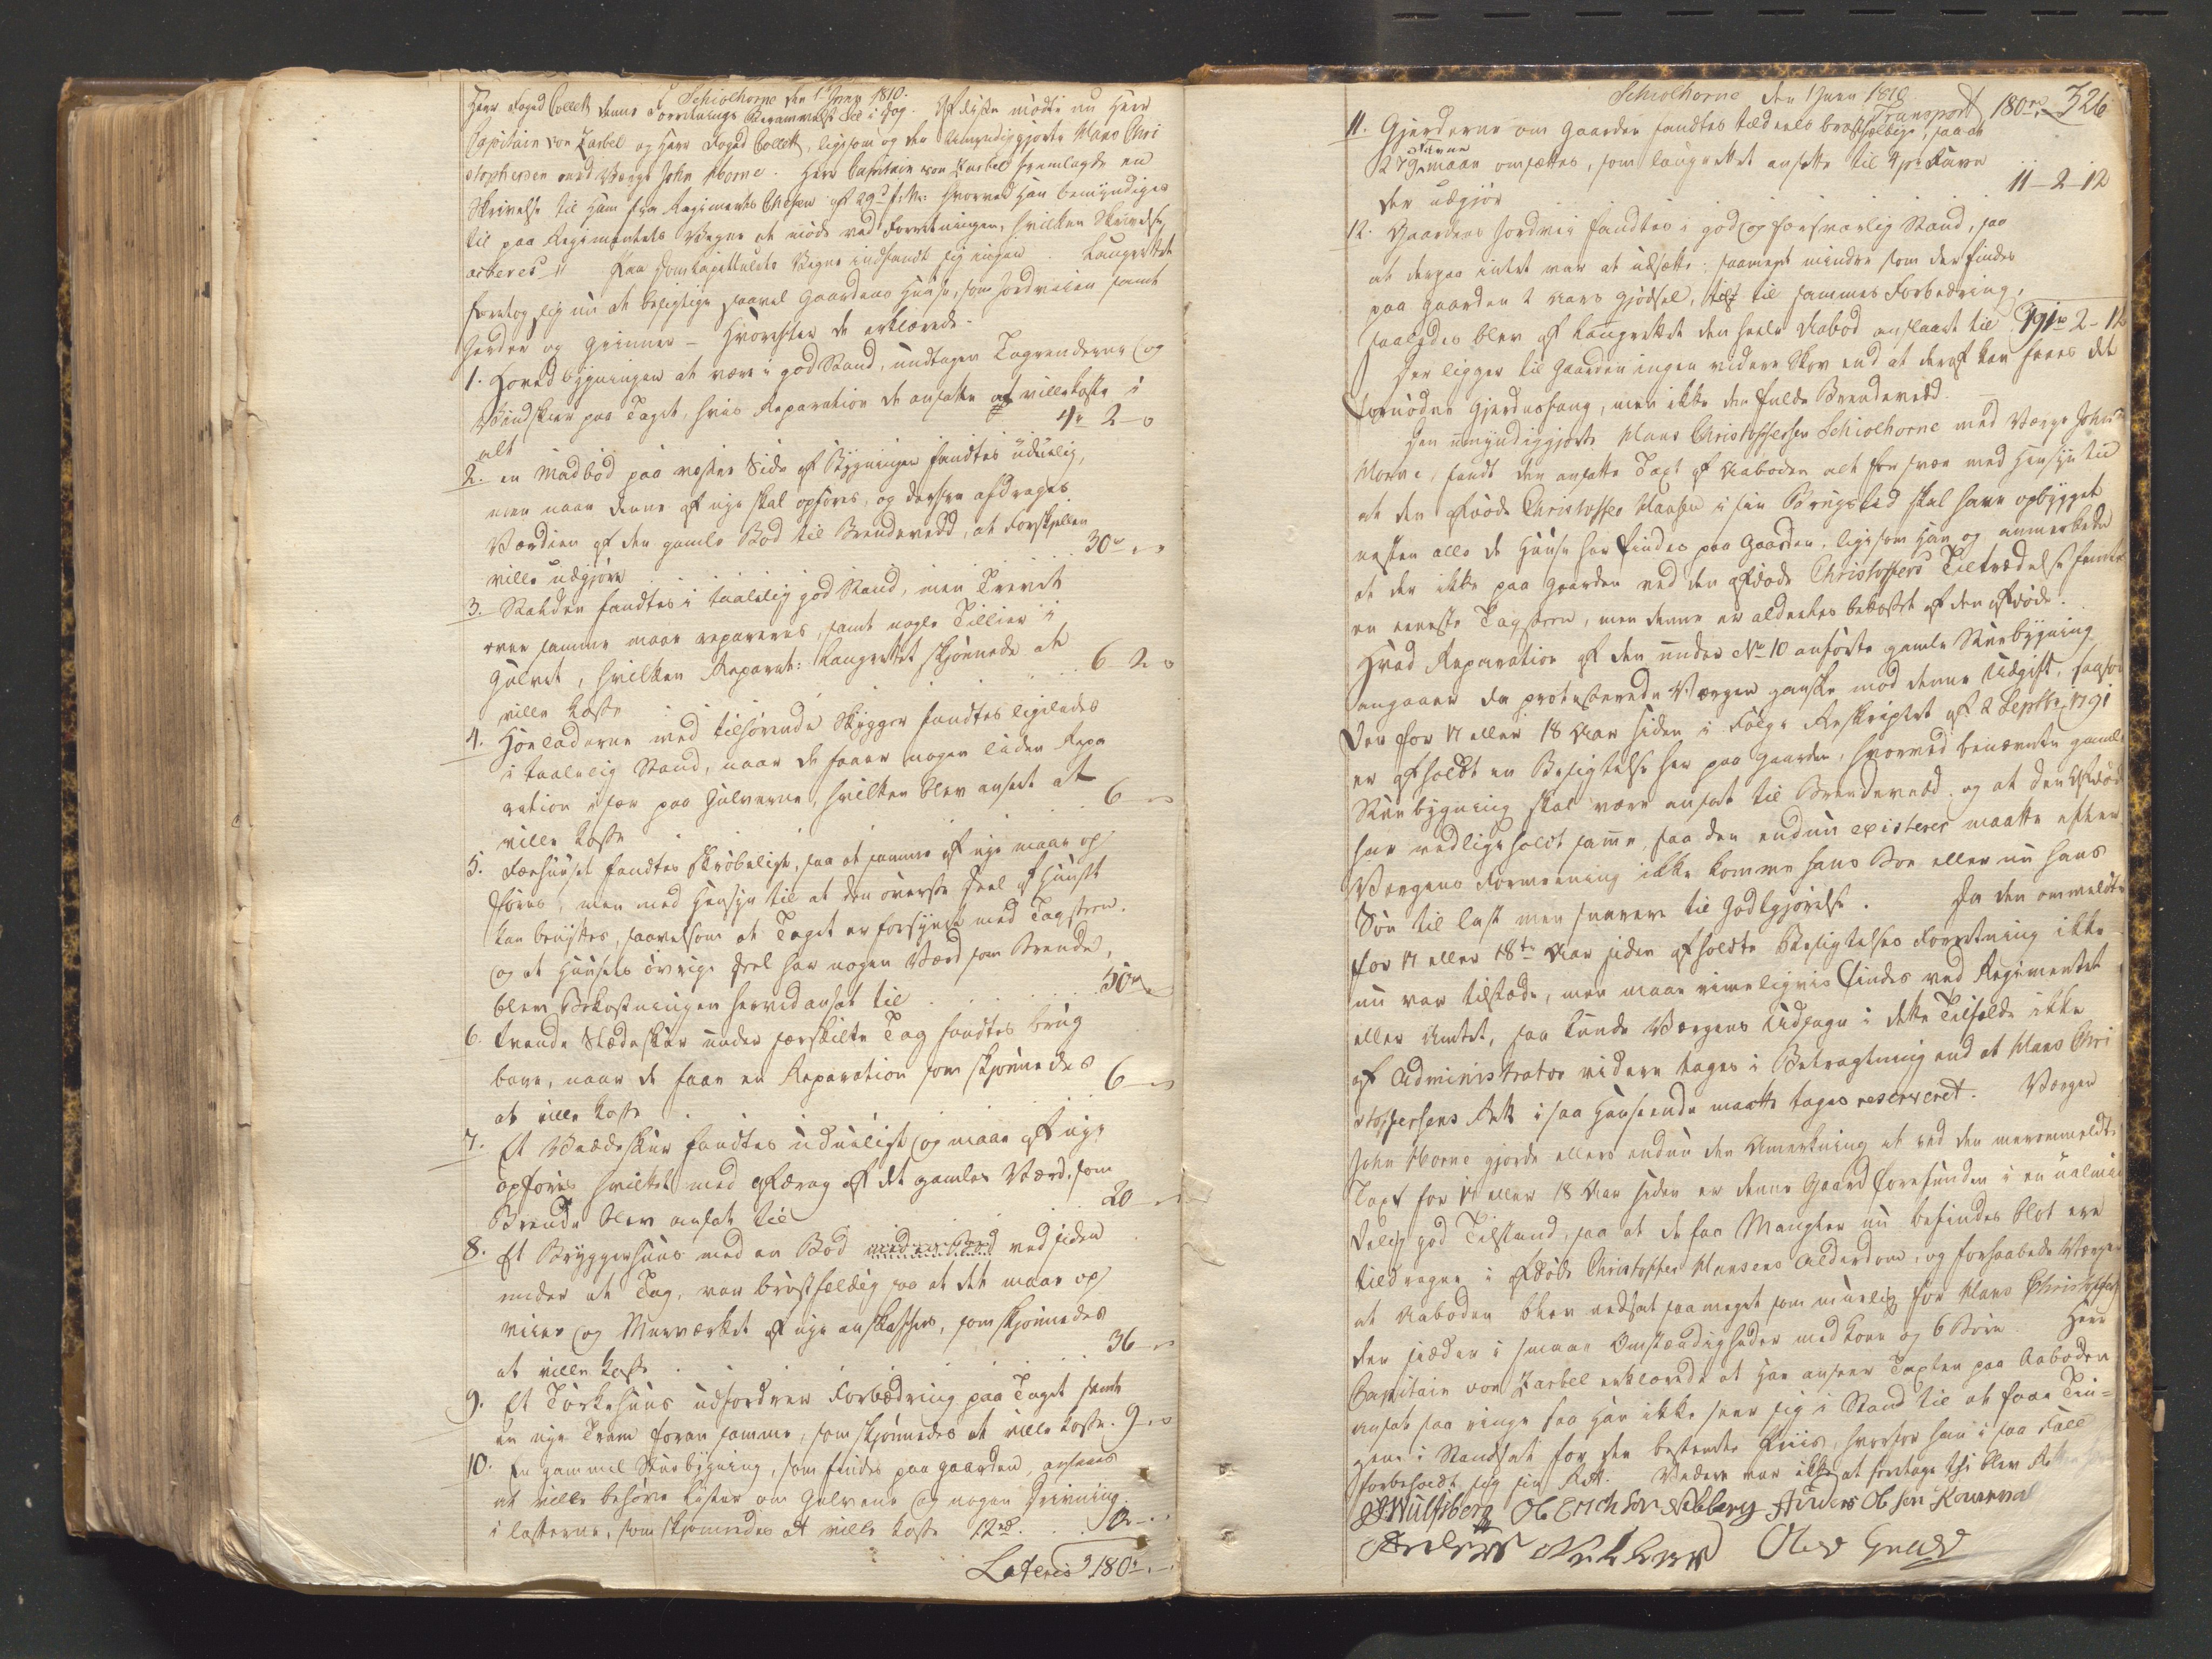 Schiolhorne den 1 Juny 1810.
Herr Foged Collett denne Forretnings Berammelse til i dag. Af disse mødte nu Herr
Capitain von Zarbel og Herr Foged Collett, ligesom og den Umyndiggjorte Hans Chri
stophersen med Værge John Horne. Herr Capitain von Zarbel fremlagde en
Skrivelse til Ham fra Regiments Chefen af 29de f: M: hvorved Han bemyndiges
til paa Regimentets Vegne at møde ved Forretningen, hvilken Skrivelse
acteres. Paa Domcapittulets Vegne indfandt sig ingen. Laugrettet
foretog sig nu at besigtige saavel Gaardens Huuse, som Jordveien samt
Gierder og Grinner – hvorefter de erklærede.
1. Hovedbygningen at være i god Stand, undtagen Tagrenderne og
Vindskier paa Taget, hvis Reparation de ansatte at ville koste i
alt 4r 2 – 0
2. en Madbod paa vestre Side af Bygningen fandtes uduelig,
men naar denne af nye skal opføres, og derfra afdrages
Værdien af den gamle Bod til Brendevedd, at Forskjellen
ville udgjøre 30r „ „
3. Stalden fandtes i taalelig god Stand, men Trevet
over samme maae repareres, samt nogle Tillier i
Gulvet, hvilken Reparat: Laugrettet skjønnede at
ville koste 6 – 2 – 0
4. Høeladerne med tilhørende Skygger fandtes ligeledes
i taalelig Stand, naar de faaer nogen liden Repa
ration især paa Gulverne, hvilken blev ansat at
ville koste 6 – „
5. Fæehuuset fandtes skrøbeligt, saa at samme af nye maae op
føres, men med Hensyn til at den øverste Deel af Huuset
kan bruges, saavelsom at Taget er forsynet med Tagsteen.
og at Huusets øvrige Deel har nogen Værd som Brende,
blev Bekostningen herved ansat til 50r „
6. tvende Slædeskur under særskilte Tag fandtes brug
bare, naar de faae en Reparation som skjønnedes
at ville koste 6 – „
7. Et Vædeskur fandtes uduelligt og maae af nye
opføres hvilket med Afdrag af det gamles Værd som
Brende blev ansat til 20 – „
8. Et Bryggerhuus med en Bod med en Bod ved siden
under et Tag, var brøstfeldig saa at det maae op
viies og Muurværket af nye anskaffes, som skjønnedes
at ville koste 36 – „
9. Et Torkehuus udfordrer Forbedring paa Taget samt
en nye Tram foran samme, som skjønnedes at ville koste. 9 – „
10. En gammel Stuebygning, som findes paa Gaarden, ansees
at ville behøve Lister om Gulvene og nogen Drivning
i lasterne, som skjønnedes at ville koste 12rd 12 – „
Lateris 180r „ – „
Schiolhorne den 1 Juny 1810
Transport 180rd „ 326
11. Gjerderne om Gaarden fandtes tildeels brøstfeldige, saa at
279 Favne maae omsættes, som Laugrettet ansatte til 4 s pr Favn
der udgjør 11 – 2 – 12
12. Gaardens Jordvei fandtes i god og forsvarlig Stand, saa
at derpaa intet var at udsætte; saameget mindre som der findes
paa Gaarden 2 Aars Gjødsel, tilf til sammes Forbedring,
saaledes blev af Laugrettet den heele Aabod anslaaet til 191rd 2 – 12
Der ligger til Gaarden ingen videre Skov end at deraf kan haves det
fornødne Gjerdesfang, men ikke den fulde Brendevedd. –
Den umyndiggjorte Hans Christoffersen Schiolhorne med Værge John
Horne, fandt den ansatte Taxt af Aaboden alt for svær med Hensyn til
at den afdøde Christoffer Hansen i sin Brugstid skal have opbygget
næsten alle de Huuse her findes paa Gaarden, ligesom Han og anmerkede
at der ikke paa Gaarden ved den afdøde Christoffers Tiltrædelse fandtes
en eeneste Tagsteen, men denne er aldeeles bekostet af den afdøde.
Hvad Reparation af den under No 10 anførte gamle Stuebygning
angaaer da protesterede Værgen ganske mod denne Udgift, saasom
der for 17 eller 18 Aar siden i Følge Reskriptet af 2 Septbr 1791
er afholdt en Besigtelse her paa Gaarden, hvorved benævnte gamle
Stuebygning skal være ansat til Brendevedd og at den Afdøde
har vedligeholdt same, saa den endnu existerer maatte efter
Værgens Formeening ikke komme hans Boe eller nu hans
Søn til last men snarere til Godtgjørelse. Da den ommeldte
for 17 eller 18te Aar siden afholdte Besigtelses Forretning ikke
nu var tilstæde, men maae rimeligviis findes ved Regimentet
eller Amtet, saa kunde Værgens Udsagn i dette Tilfelde ikke
af Administrator videre tages i Betragtning end at Hans Chri
stoffersens Ret i saa Henseende maatte tages reserveret. Værgen
John Horne gjorde ellers endnu den Anmerkning at ved den merommeldte
Taxt for 17 eller 18 Aar siden er denne Gaard forefunden i en ualmin
delig god Tilstand, saa at de faa Mangler nu befindes blot ere
tildragne i afdøde Christoffer Hansens Alderdom, og forhaabede Værgen
at Aaboden blev nedsat saa meget som muelig for Hans Christoffers:
der sidder i smaae Omstændigheder med Kone og 6 Børn. Herr
Capitain von Zarbel erklærede at Han anseer Taxten paa Aaboden
ansat saa ringe saa Han ikke seer sig i Stand til at faae Tin-
gene i Standsat for den bestemte Priis, hvorfor han i saa Fald
forbeholdt sig sin Ret. Videre var ikke at foretage thi blev Retten
JS. Wulfsberg Ole Erichsen Nebbery Anders Olsen Kouernes